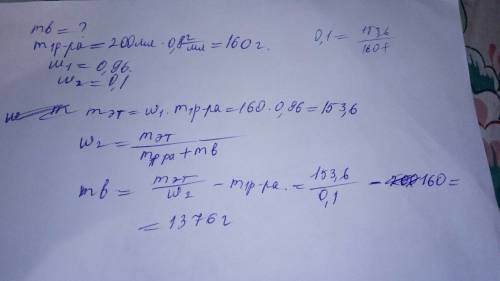 mв = ?
m1р-ра = 200мл · 0,8 г/мл = 160 г.
w1 = 0,96.
w2 = 0,1
0,1 = 153,6 / 160+
mэт = w1 · m1р-ра = 160 · 0,96 = 153,6
w2 = mэт / mр-ра + mв
mв = mэт / w2 - m1р-ра. = 153,6 / 0,1 - 160 =
= 1376 г